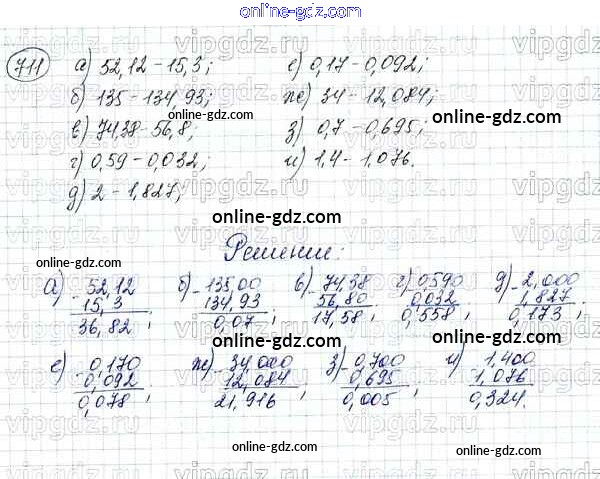 online-gdz.com
711
а) 52,12 - 15,3; е) 0,17 - 0,092;
б) 135 - 134,93; ж) 34 - 12,084;
в) 74,38 - 56,8; з) 0,7 - 0,695;
г) 0,59 - 0,032; и) 1,4 - 1,076.
д) 2 - 1,827;
Решение:
а) - 52,12 б) - 135,00 в) - 74,38 г) - 0,590 д) - 2,000
15,3 134,93 56,80 0,032 1,827
36,82; 0,07; 17,58; 0,558; 0,173;
е) - 0,170 ж) - 34,000 з) - 0,700 и) - 1,400
0,092 12,084 0,695 1,076
0,078; 21,916; 0,005; 0,324.
online-gdz.com
online-gdz.com
online-gdz.com
online-gdz.com
online-gdz.com
online-gdz.com
online-gdz.com
online-gdz.com
vipgdz.com